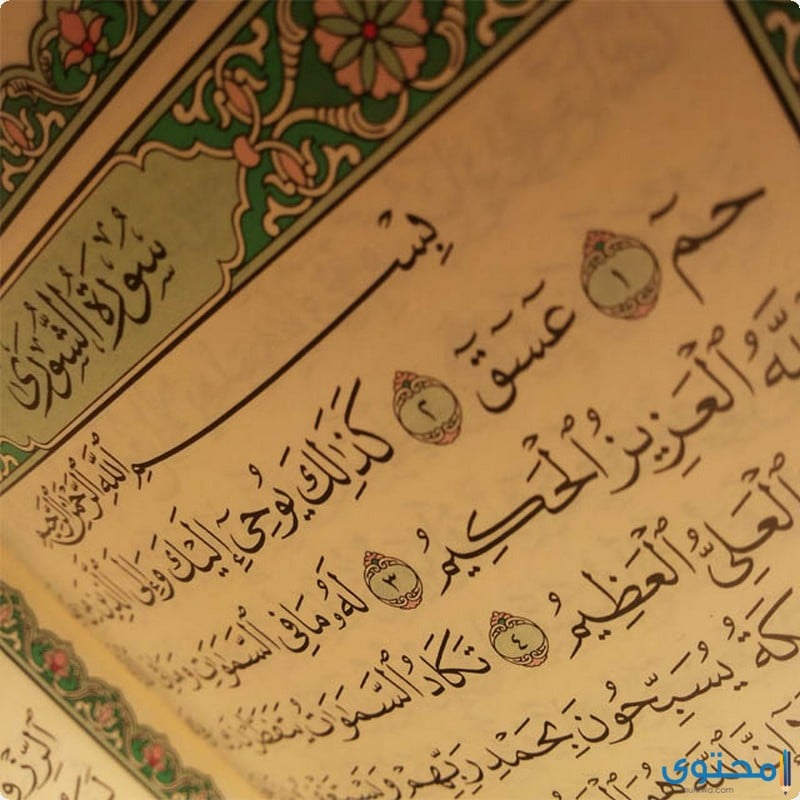 سُورَةُ الشُّورَىٰ
بِسْمِ اللَّهِ الرَّحْمَٰنِ الرَّحِيمِ
حمٓ ١ عٓسٓقٓ ٢ كَذَٰلِكَ يُوحِىٓ إِلَيْكَ وَإِلَى
ٱللَّهُ ٱلْعَزِيزُ ٱلْحَكِيمُ ٣ لَهُۥ مَا فِى ٱلسَّمَٰوَٰتِ وَمَا
ٱلْعَلِىُّ ٱلْعَظِيمُ ٤ تَكَادُ ٱلسَّمَٰوَٰتُ
يُسَبِّحُونَ بِحَمْدِ رَبِّهِمْ
محتوى